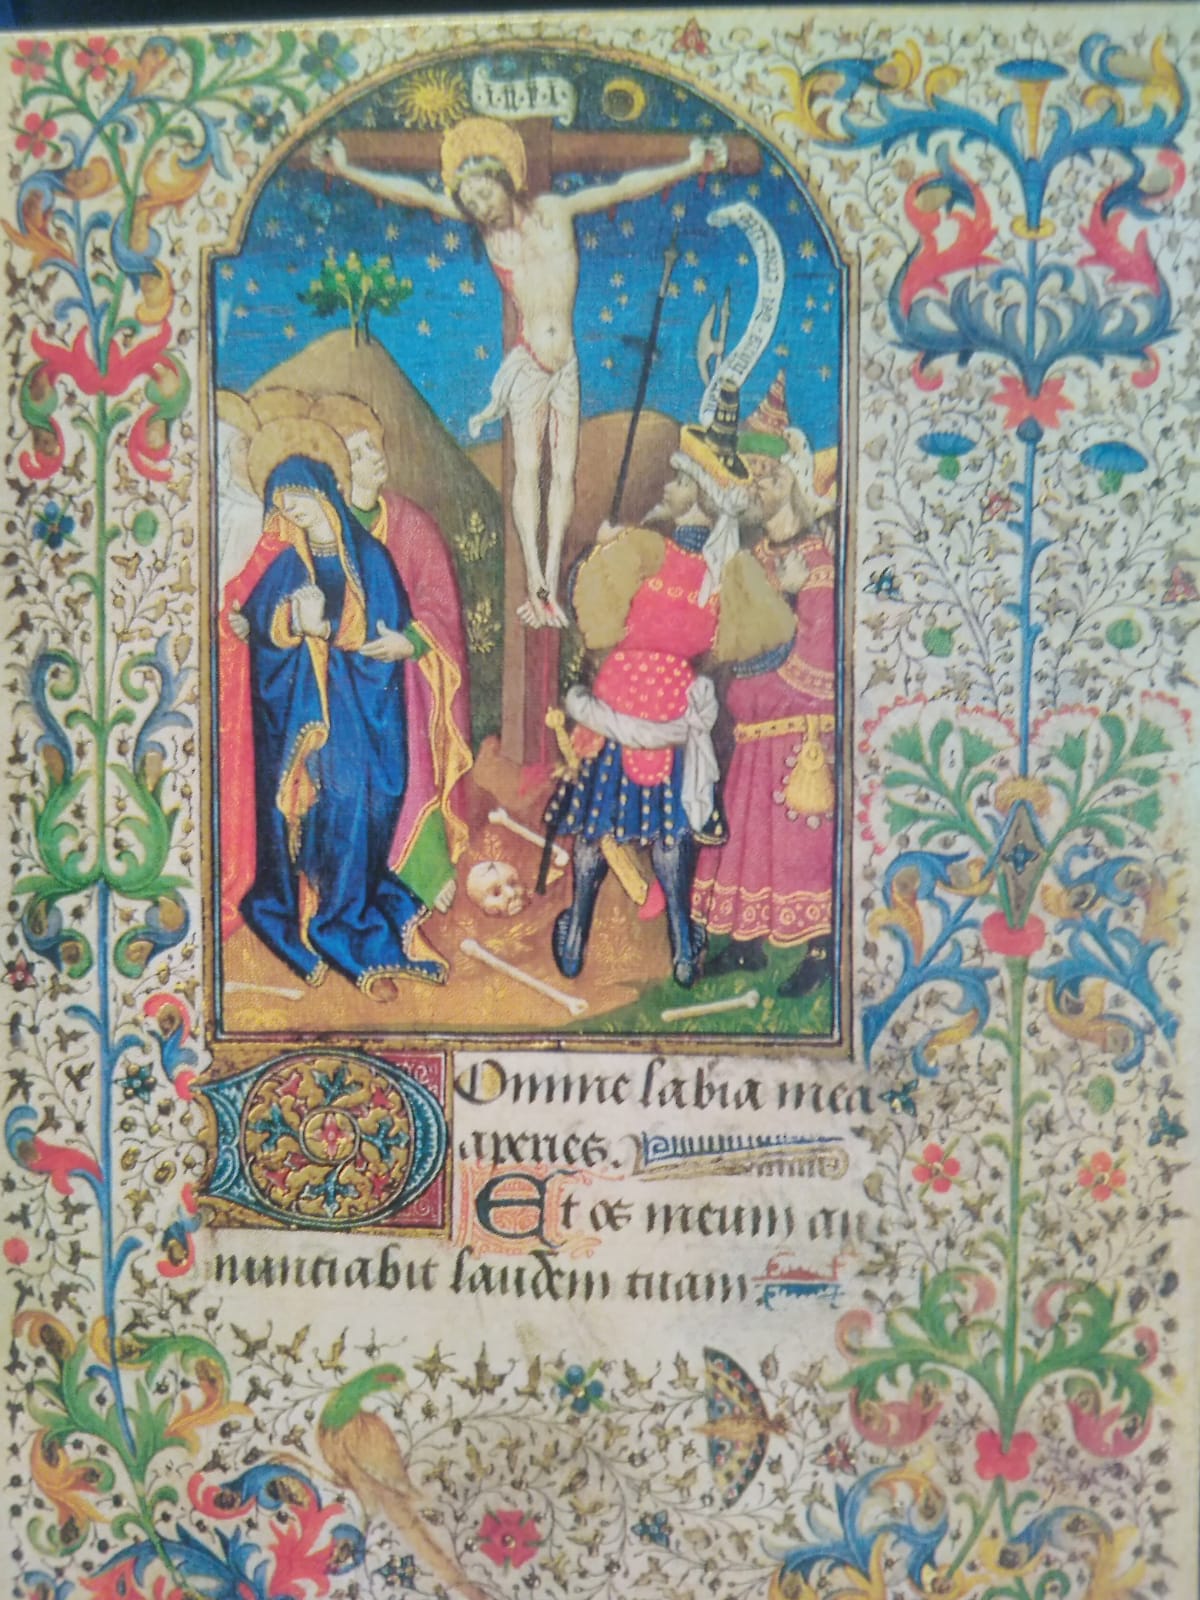 i·n·r·i·
filius · dei
Domine labia mea
aperies.
Et os meum an
nunciabit laudem tuam